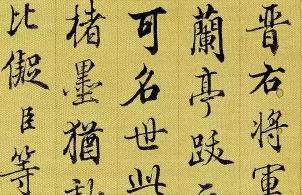 晋右將軍
蘭亭跋
可名世此
楮墨猶
比儗臣等